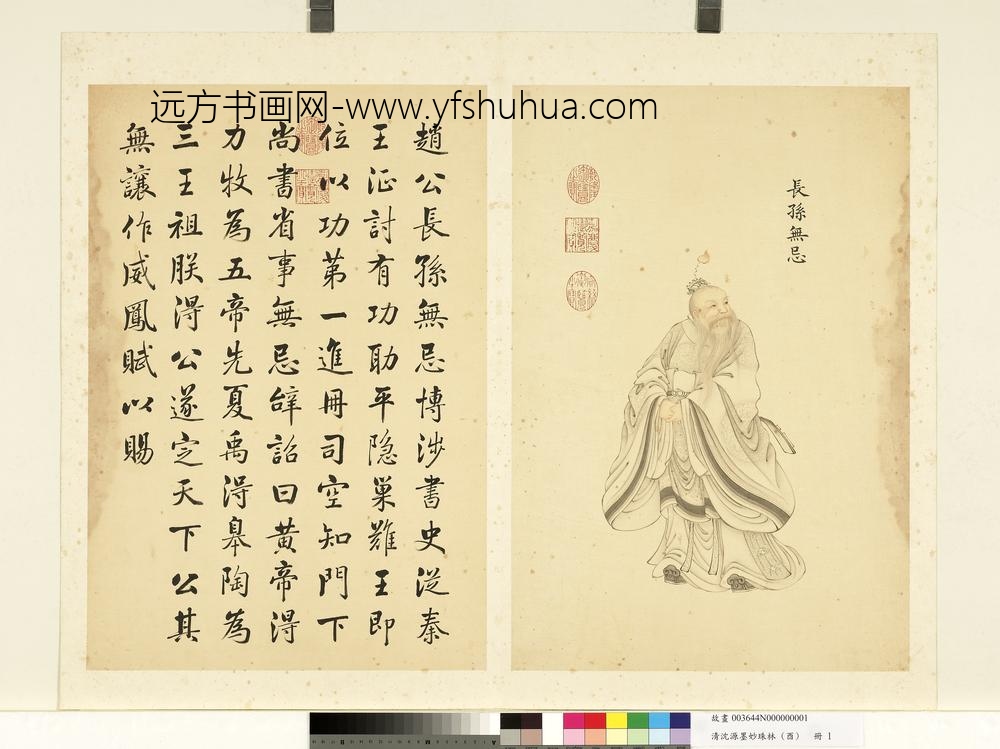 远方书画网-www.yfshuhua.com
長孫無忌
趙公長孫無忌博涉書史従秦
王征討有功助平隐巢難王即
位以功第一進冊司空知門下
尚書省事無忌辭詔曰黄帝得
力牧為五帝先夏禹得皋陶為
三王祖朕得公遂定天下公其
無讓作威鳳賦以賜
故畫 003644N000000001
清沈源墨妙珠林（酉） 冊 1